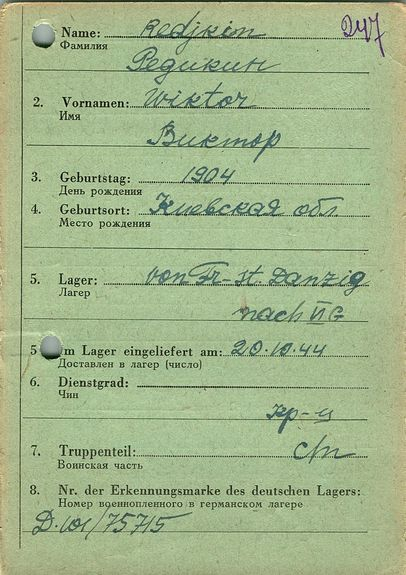 247
Name: Redjkin
Фамилия
Редикин
2. Vornamen: Wiktor
Имя
Виктор
3. Geburtstag: 1904
День рождения
4. Geburtsort: Киевская обл.
Место рождения
5. Lager: von Fr-st. Danzig
Лагер
nach II G
5 Im Lager eingeliefert am: 20.10.44
Доставлен в лагер (число)
6. Dienstgrad:
Чин
кр-ц
7. Truppenteil:
Воинская часть
8. Nr. der Erkennungsmarke des deutschen Lagers:
Номер военнопленного в германском лагере
D.101/75715